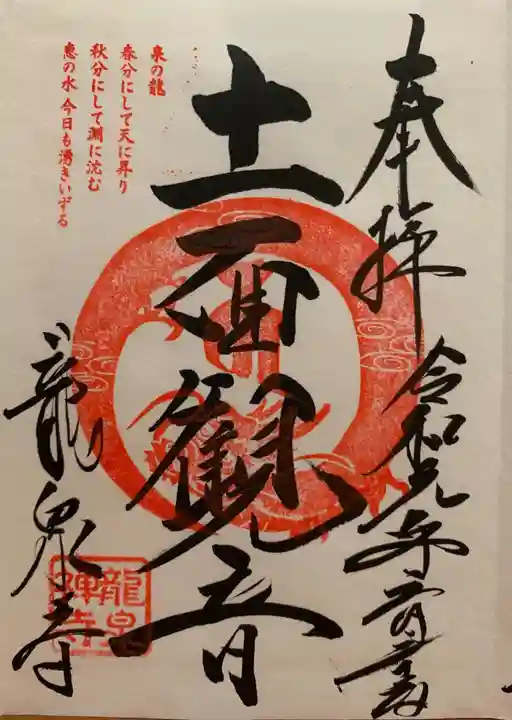 奉拝
令和元年
十一面観音
泉の龍
春分にして天に昇り
秋分にして淵に沈む
恵の水 今日も湧きいずる
龍泉寺
龍泉
禅寺